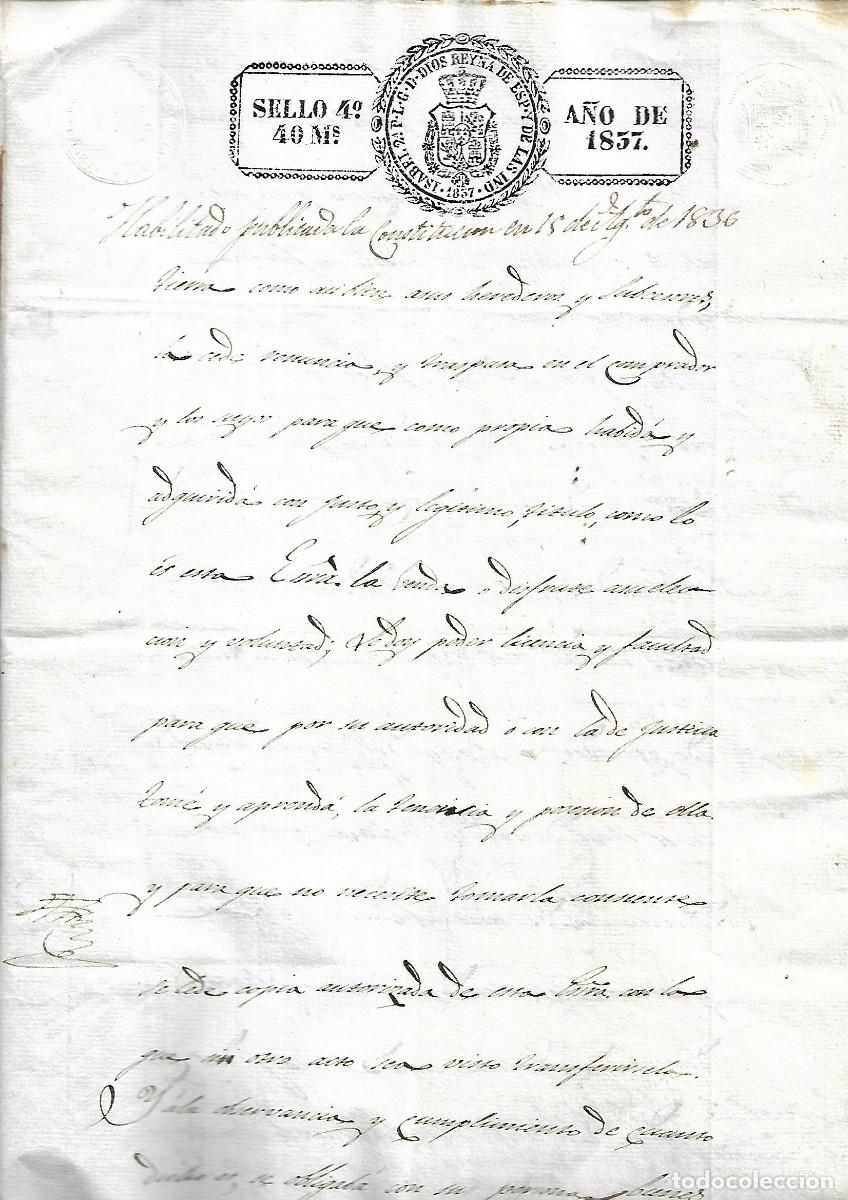 SELLO 4º
40 Mˢ
ISABEL 2ª P. L. G. D. DIOS REYNA DE ESP. Y DE LAS IND.
1837
AÑO DE
1837.
Habilitado publicada la Constitucion en 15 de Agᵗᵒ de 1836
tiema como anbien asus herederos y subcesores,
la cede renuncia, y traspasa en el comprador
y los suyos para que como propia habida y
adquirida con justo, y legitimo, titulo, como lo
és esta Esrⁿᵃ la venda o disfrute asuelec
cion y voluntad; Le doy poder licencia y facultad
para que por su autoridad ó con la de Justicia
tomé y aprendá, la tenencia y posesion de ella
y para que no necesite tomarla consiente
se le dé copia autorizada de esta Esrⁿᵃ con la
que sin otro acto sea visto transferirsela.
Y á la observancia y cumplimiento de cuanto
dicho es, se obligá con su persona y bienes
todocoleccion